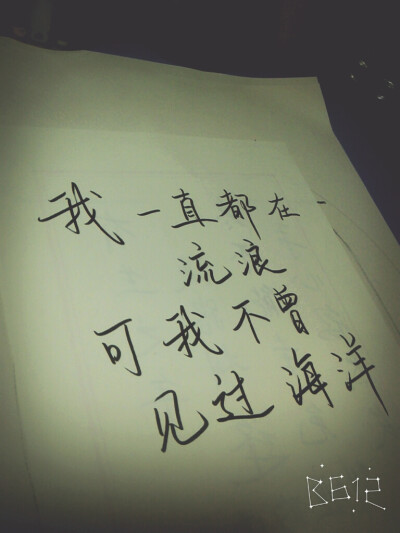 我一直都在
流浪
可我不曾
见过海洋
B612